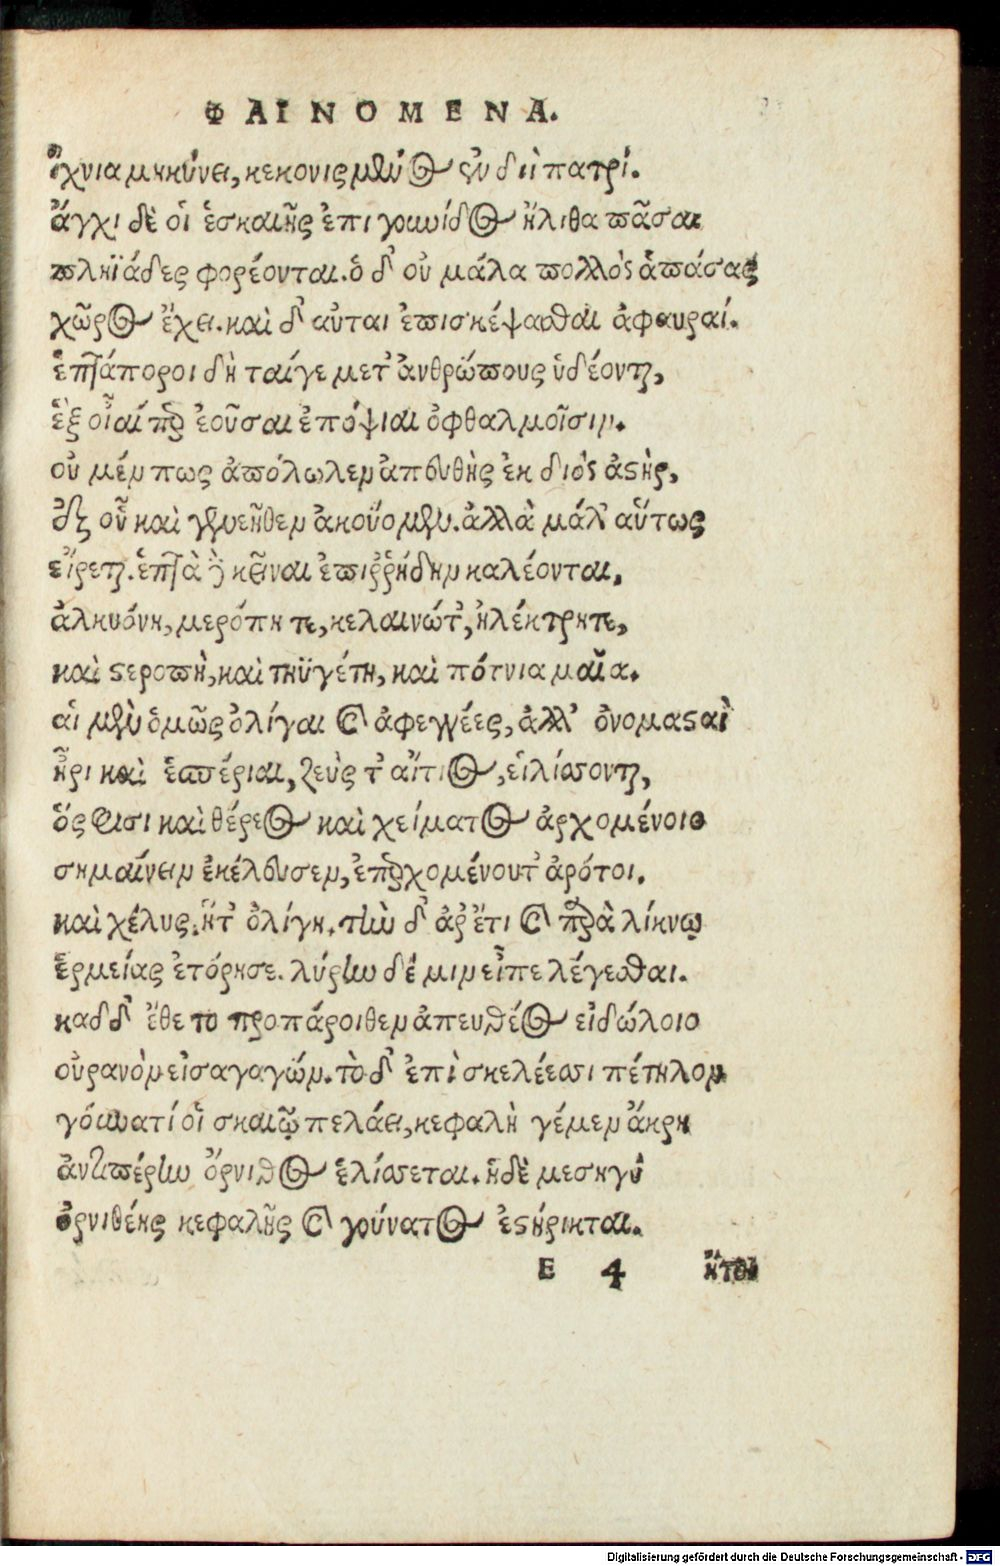 ΦΑΙΝΟΜΕΝΑ.
ἴχνια μηκύνει, κεκονισμένος ἐν διῒ πατρί.
ἄγχι δὲ οἱ ἑσκαιῆς ἐπιγουνίδος ἤλιθα πᾶσαι
πληϊάδες φορέονται. ὁ δ' οὐ μάλα πολλὸς ἁπάσας
χῶρος ἔχει. καὶ δ' αὐται ἐπισκέψασθαι ἀφαυραί.
ἑπτάποροι δὴ ταίγε μετ' ἀνθρώπους ὑδέονται,
ἓξ οἶαί περ ἐοῦσαι ἐπόψιαι ὀφθαλμοῖσιν.
οὐ μέν πως ἀπόλωλεν ἀπευθὴς ἐκ διὸς ἀστὴρ,
ἐξ οὗ καὶ γενεῆθεν ἀκούομεν. ἀλλὰ μάλ' αὕτως
εἴρεται. ἑπτὰ δὲ κεῖναι ἐπιῤῥήδην καλέονται,
ἀλκυόνη, μερόπη τε, κελαινώτ', ἠλέκτρητε,
καὶ στεροπὴ, καὶ τηϋγέτη, καὶ πότνια μαῖα.
αἱ μὲν ὁμῶς ὀλίγαι καὶ ἀφεγγέες, ἀλλ' ὀνομασταὶ
ἦρι καὶ ἑσπέριαι, ζεὺς τ' αἴτιος, εἱλίσσονται,
ὅς σφισι καὶ θέρεος καὶ χείματος ἀρχομένοιο
σημαίνειν ἐκέλευσεν, ἐπερχομένου τ' ἀρότοι.
καὶ χέλυς, ἥτ' ὀλίγη. τὴν δ' ἀρ' ἔτι καὶ παρὰ λίκνῳ
ἑρμείας ἐτόρησε. λύρην δέ μιν εἶπε λέγεσθαι.
καδδ' ἔθετο προπάροιθεν ἀπευθέος εἰδώλοιο
οὐρανὸν εἰσαγαγών. τὸ δ' ἐπὶ σκελέεσσι πέτηλον
γόυνατί οἱ σκαιῷ πελάει, κεφαλὴ γέμεν ἄκρη
ἀντιπέρην ὄρνιθος ἑλίσσεται. ἡδὲ μεσηγὺ
ὀρνιθέης κεφαλῆς καὶ γούνατος ἐστήρικται.
E 4 ἤτοι
Digitalisierung gefördert durch die Deutsche Forschungsgemeinschaft - DFG